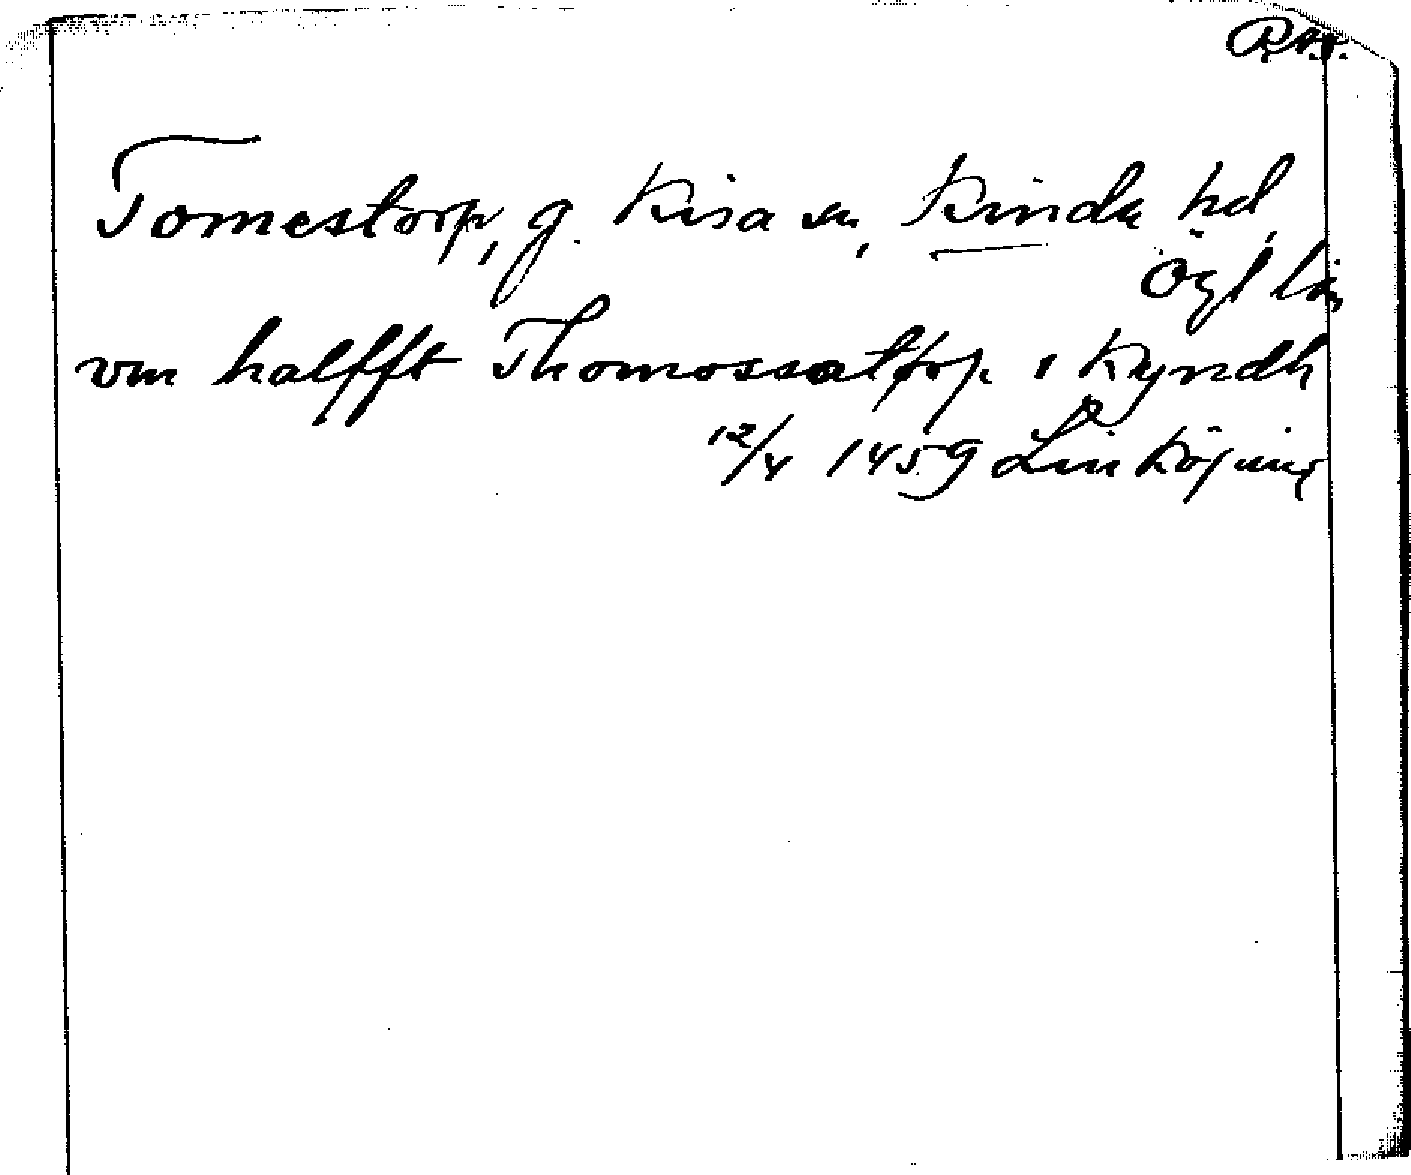 Tomestorp, g. Kisa sn, Kinda hd,
Ögl län
vm halfft Thomossatorp i Kyndh
12/4 1459 Linköping